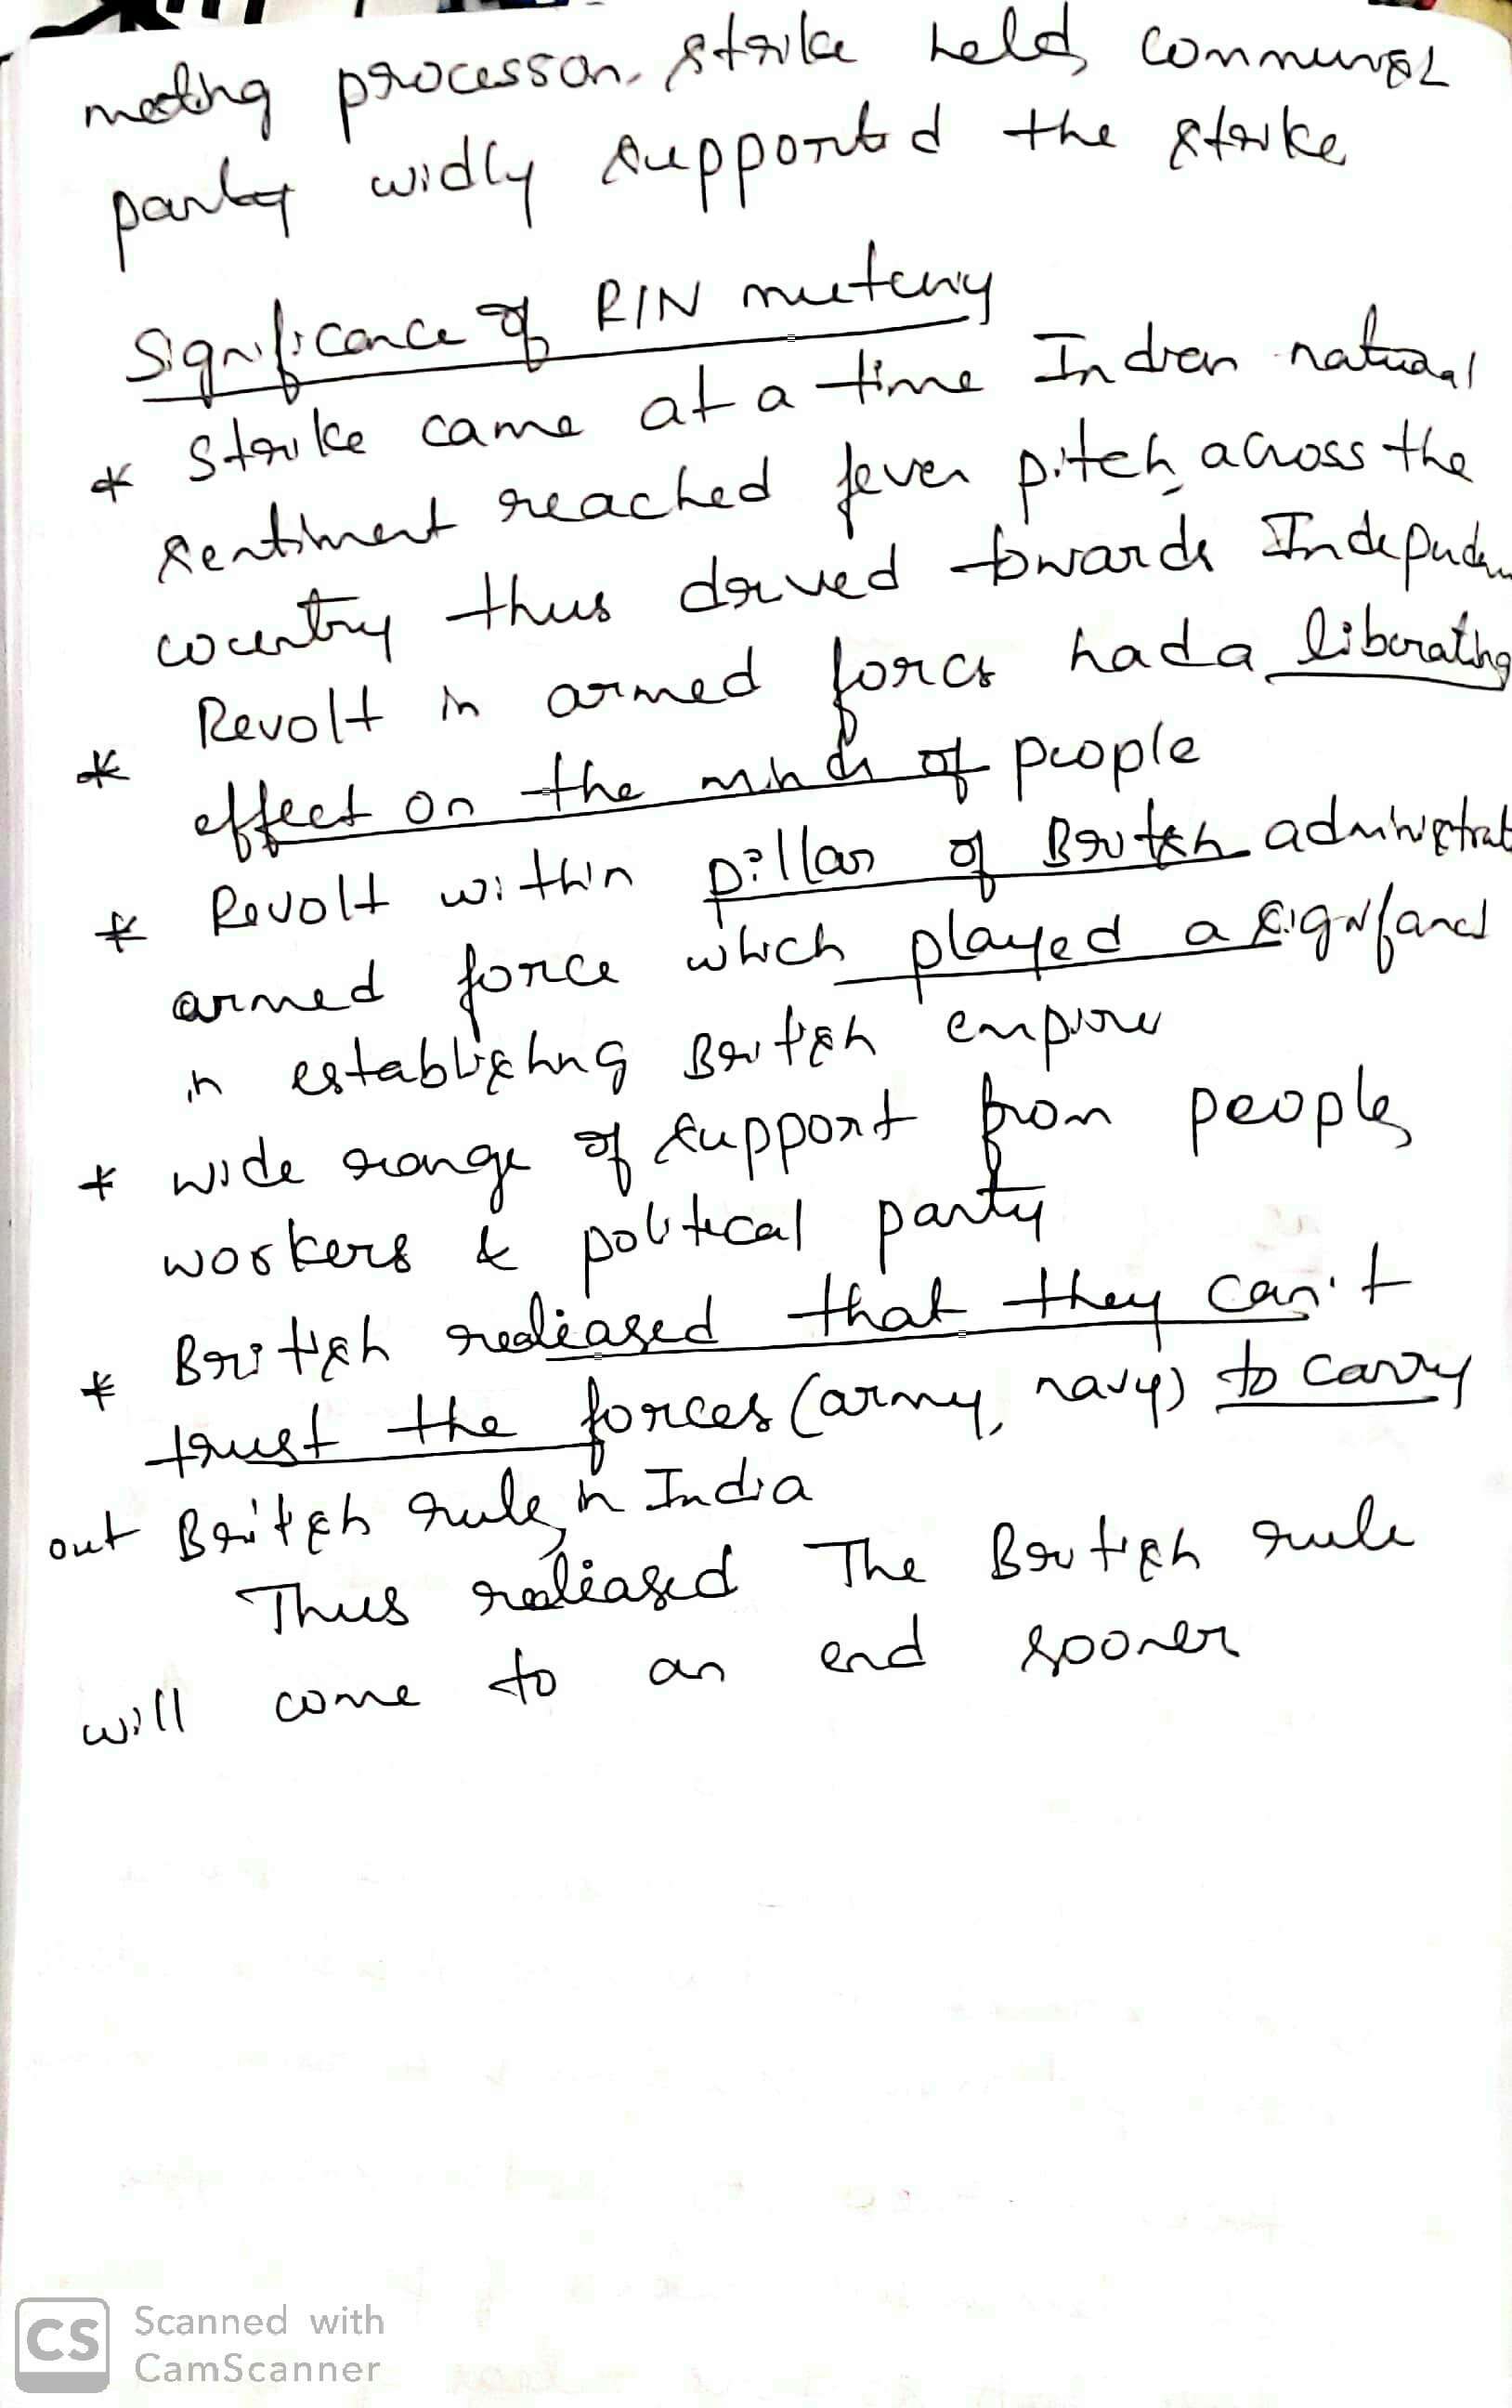 meeting procession, strike held, communist
party widly supported the strike
Significance of RIN muteny
* Strike came at a time Indian national
sentiment reached fever pitch across the
country thus drived towards Independen
* Revolt in armed forces had a liberating
effect on the minds of people
* Revolt within pillar of British administrat
armed force which played a significant
in establishing British empire
* wide range of support from people,
workers & political party
* British realised that they can't
trust the forces (army, navy) to carry
out British rule in India
Thus realised The British rule
will come to an end sooner
CS Scanned with
CamScanner